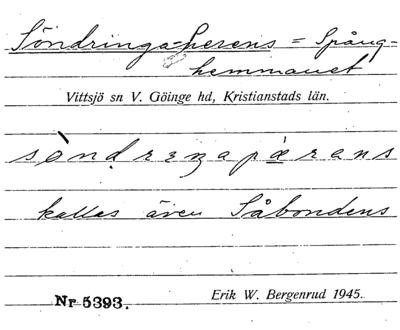 Söndringa=Perens = Spång-
hemmanet
Vittsjö sn V. Göinge hd, Kristianstads län.
kallas även Såbondens
Nr 5393. Erik W. Bergenrud 1945.